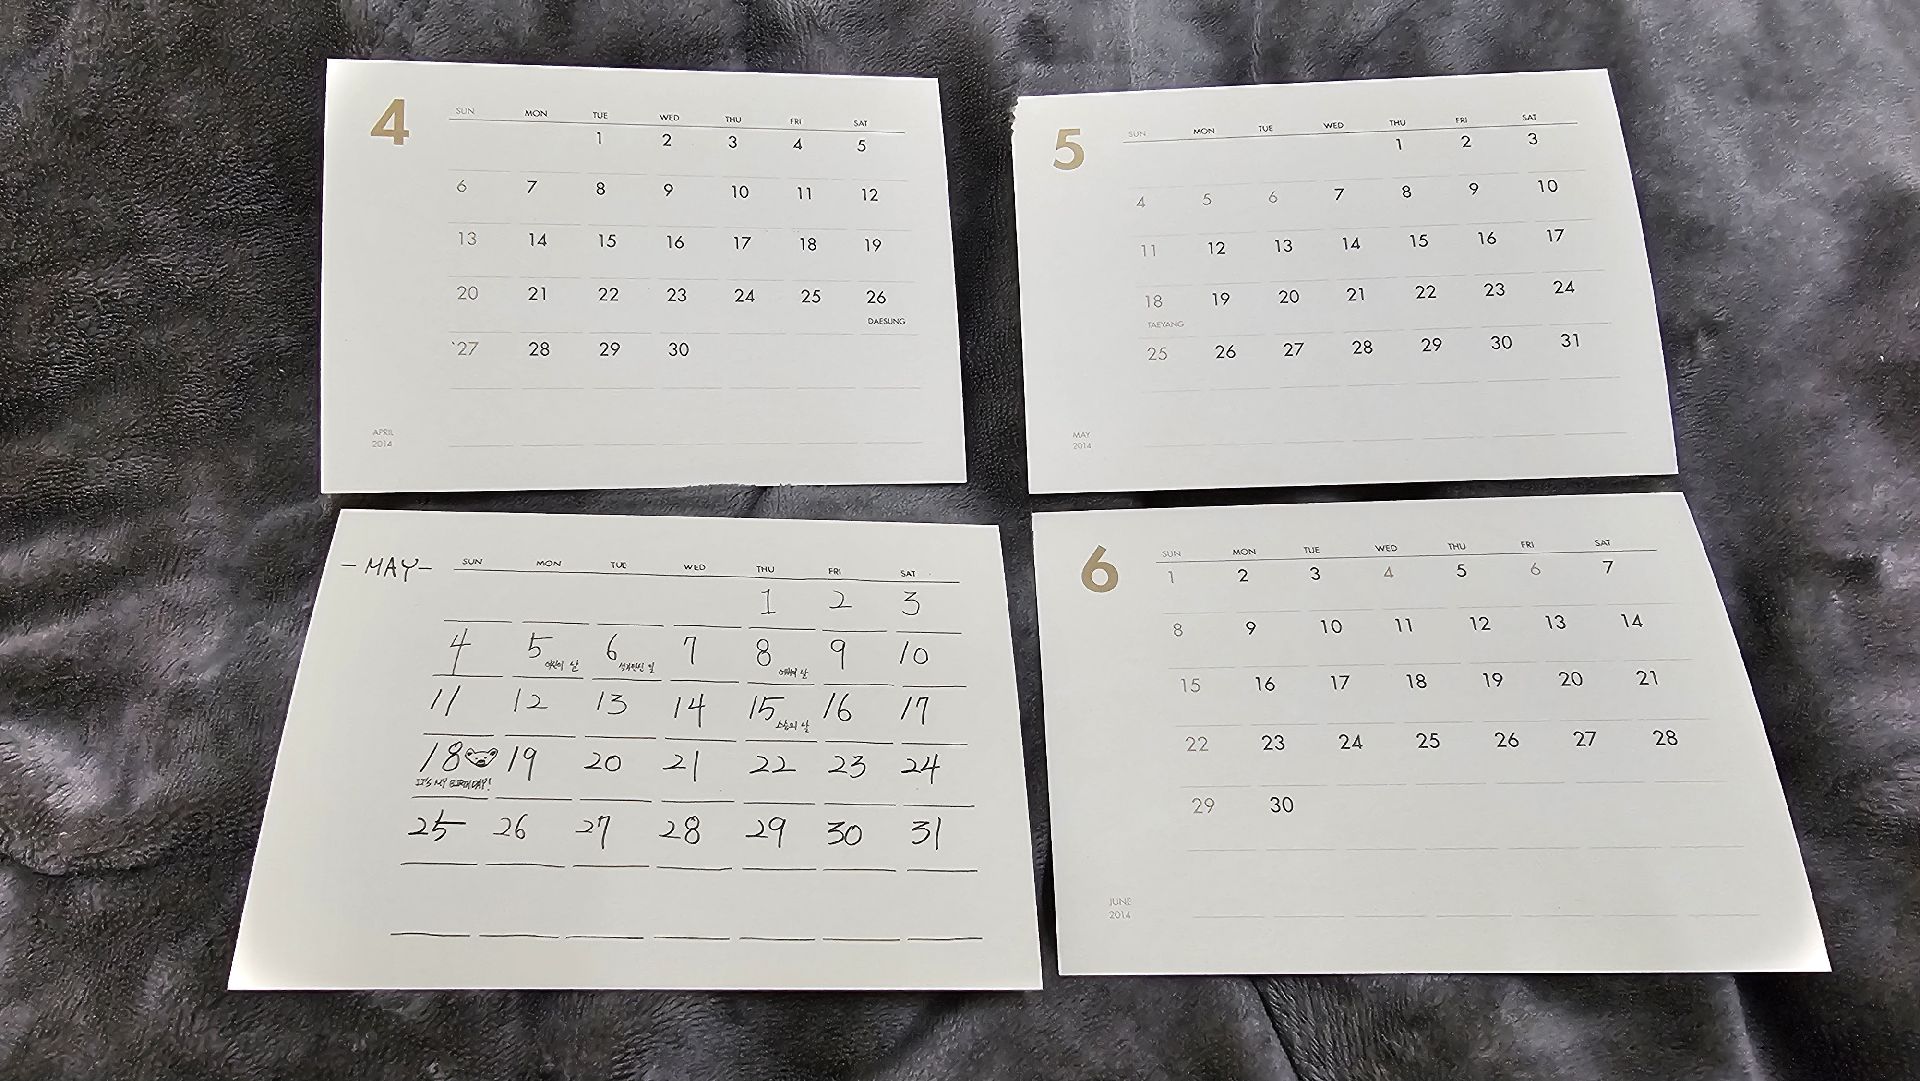 4
SUN MON TUE WED THU FRI SAT
1 2 3 4 5
6 7 8 9 10 11 12
13 14 15 16 17 18 19
20 21 22 23 24 25 26
DAESUNG
27 28 29 30
APRIL
2014
5
SUN MON TUE WED THU FRI SAT
1 2 3
4 5 6 7 8 9 10
11 12 13 14 15 16 17
18 19 20 21 22 23 24
TAEYANG
25 26 27 28 29 30 31
MAY
2014
-MAY-
SUN MON TUE WED THU FRI SAT
1 2 3
4 5 6 7 8 9 10
어린이 날 석가탄신 일 어버이 날
11 12 13 14 15 16 17
스승의 날
18 19 20 21 22 23 24
IT'S MY BIRTHDAY!
25 26 27 28 29 30 31
6
SUN MON TUE WED THU FRI SAT
1 2 3 4 5 6 7
8 9 10 11 12 13 14
15 16 17 18 19 20 21
22 23 24 25 26 27 28
29 30
JUNE
2014